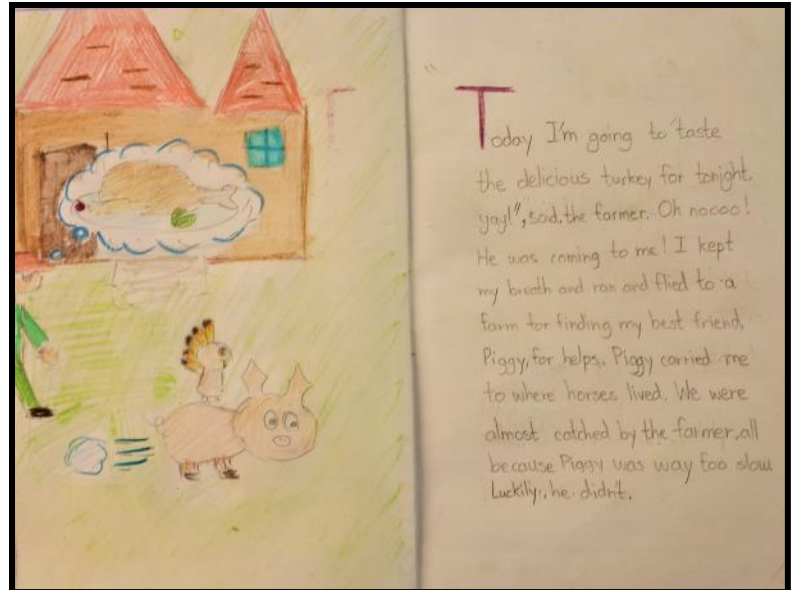 "Today I'm going to taste
the delicious turkey for tonight,
yay!", said, the farmer. Oh noooo!
He was coming to me! I kept
my breath and ran and flied to a
farm for finding my best friend,
Piggy, for helps. Piggy carried me
to where horses lived. We were
almost catched by the farmer, all
because Piggy was way too slow.
Luckily, he didn't.